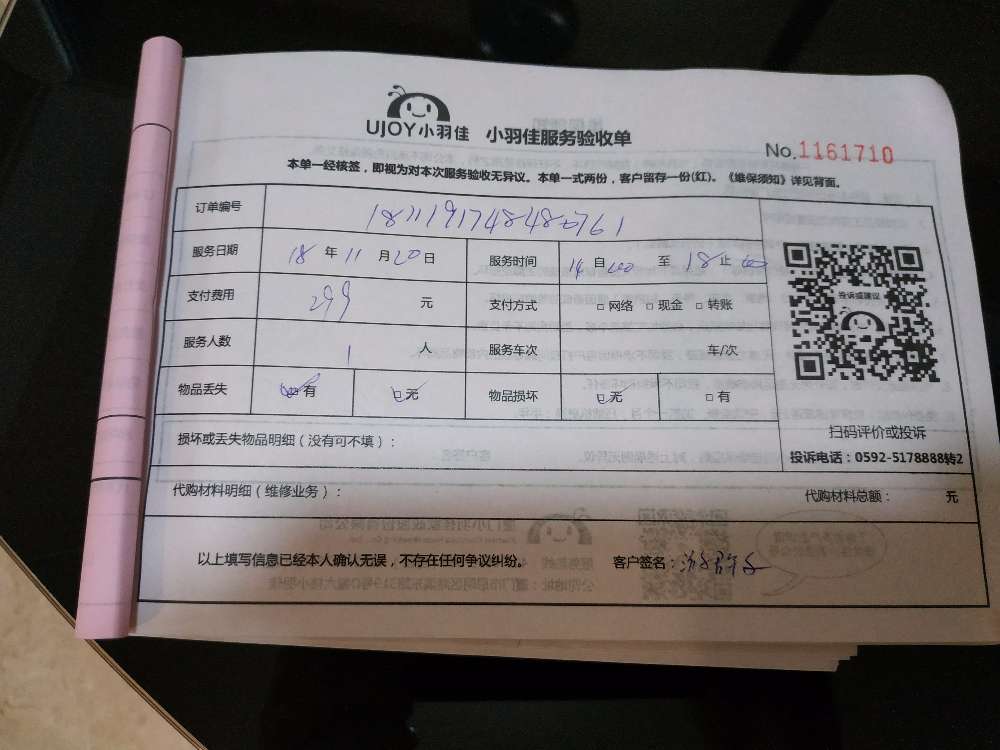 UJOY小羽佳 小羽佳服务验收单
No.1161710
本单一经核签，即视为对本次服务验收无异议。本单一式两份，客户留存一份(红)。《维保须知》详见背面。
订单编号
服务日期 18 年 11 月 20 日 服务时间 14 自 00 至 18 止 00
投诉或建议
支付费用 299 元 支付方式 □网络 □现金 □转账
服务人数 1 人 服务车次 车/次
物品丢失 有 无 物品损坏 无 □有
扫码评价或投诉
损坏或丢失物品明细（没有可不填）：
投诉电话：0592-5178888转2
代购材料明细（维修业务）： 代购材料总额： 元
以上填写信息已经本人确认无误，不存在任何争议纠纷。 客户签名：